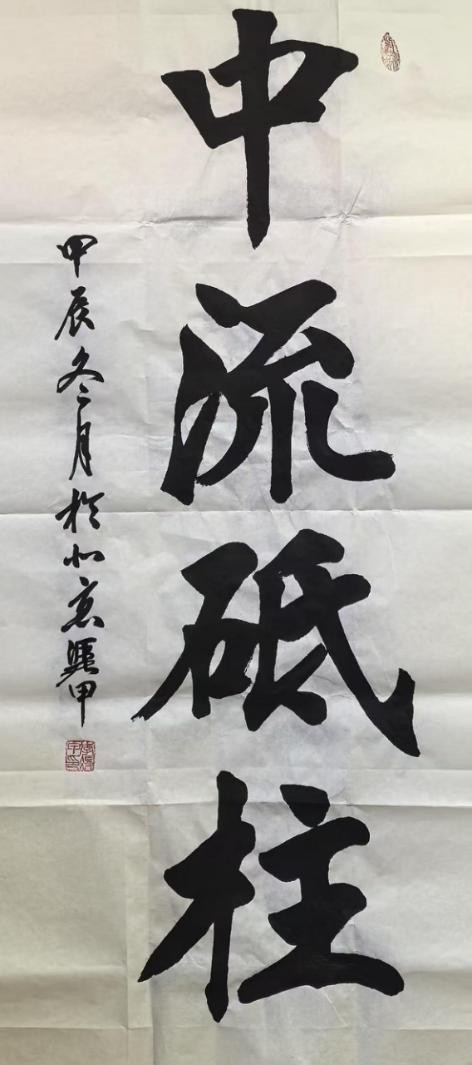 中流砥柱
甲辰冬月於北京甲